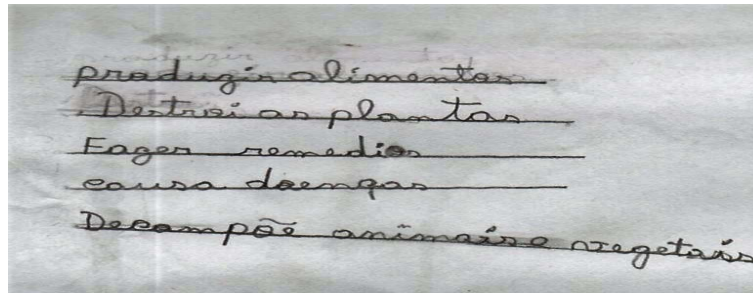 produzir alimentos
Destroi as plantas
Fazer remedios
causa doenças
Decompõe animais e vegetais